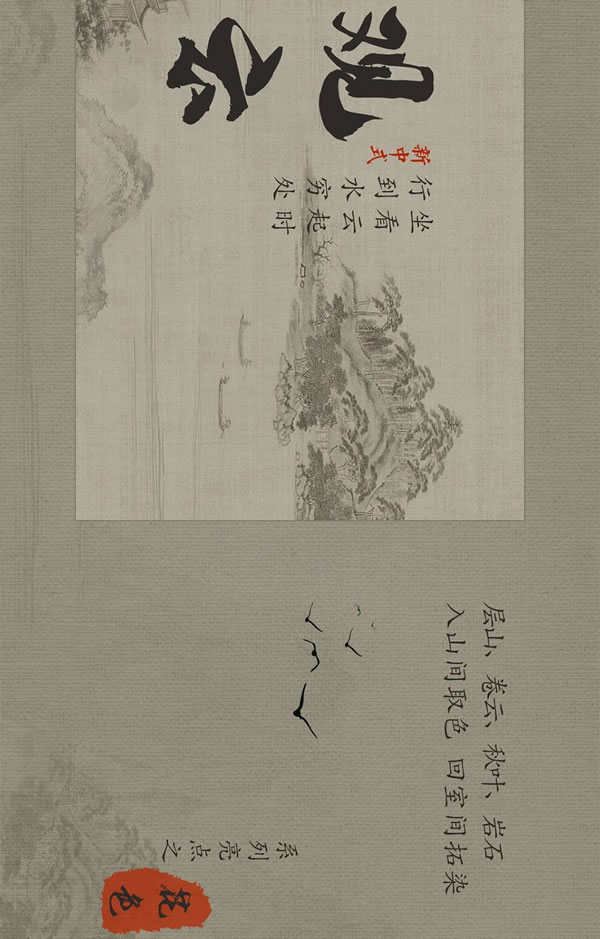 观云
新中式
行到水穷处
坐看云起时
层山、卷云、秋叶、岩石
入山间取色 回室间拓染
系列亮点之
花色